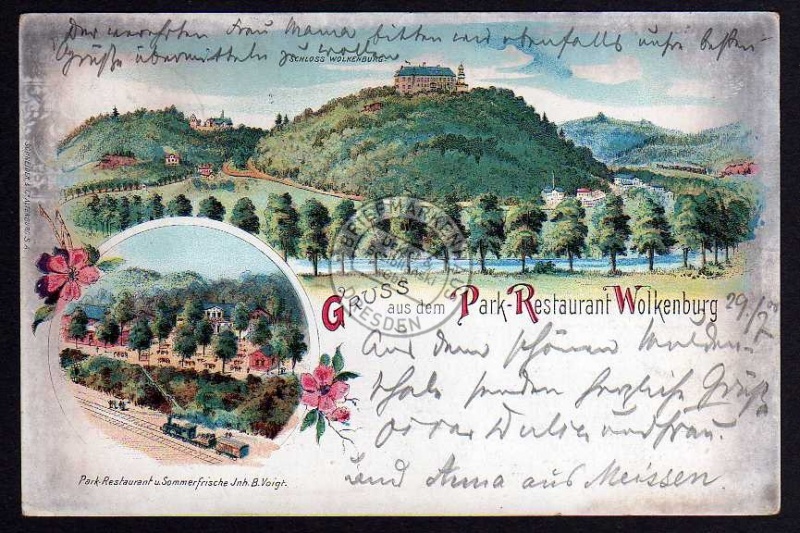 Der verehrten Frau Mama bitten wir ebenfalls unsre besten
Grüße übermitteln zu wollen.
SCHLOSS WOLKENBURG
BRIEFMARKEN
DRESDEN
GRUSS aus dem Park-Restaurant Wolkenburg
29./7.00
Aus dem schönen Mulden-
thale senden herzliche Grüße
Oscar und Frau.
und Anna aus Meissen.
Park-Restaurant u. Sommerfrische Jnh. B. Voigt.